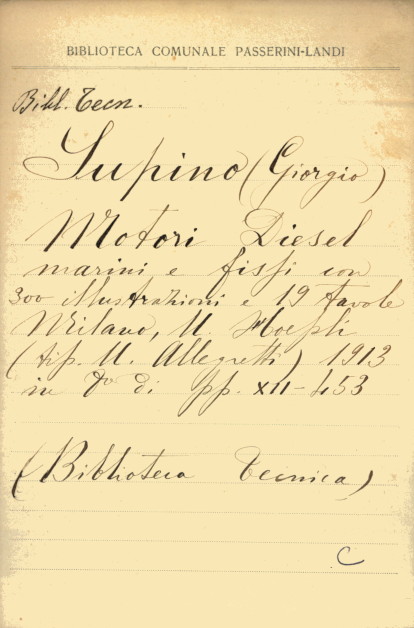 BIBLIOTECA COMUNALE PASSERINI-LANDI
Bibl. Tecn.
Supino (Giorgio)
Motori Diesel
marini e fissi con
300 illustrazioni e 19 tavole
Milano, U. Hoepli
(tip. U. Allegretti) 1913
in 8° di pp. XII-453
(Biblioteca Tecnica)
C